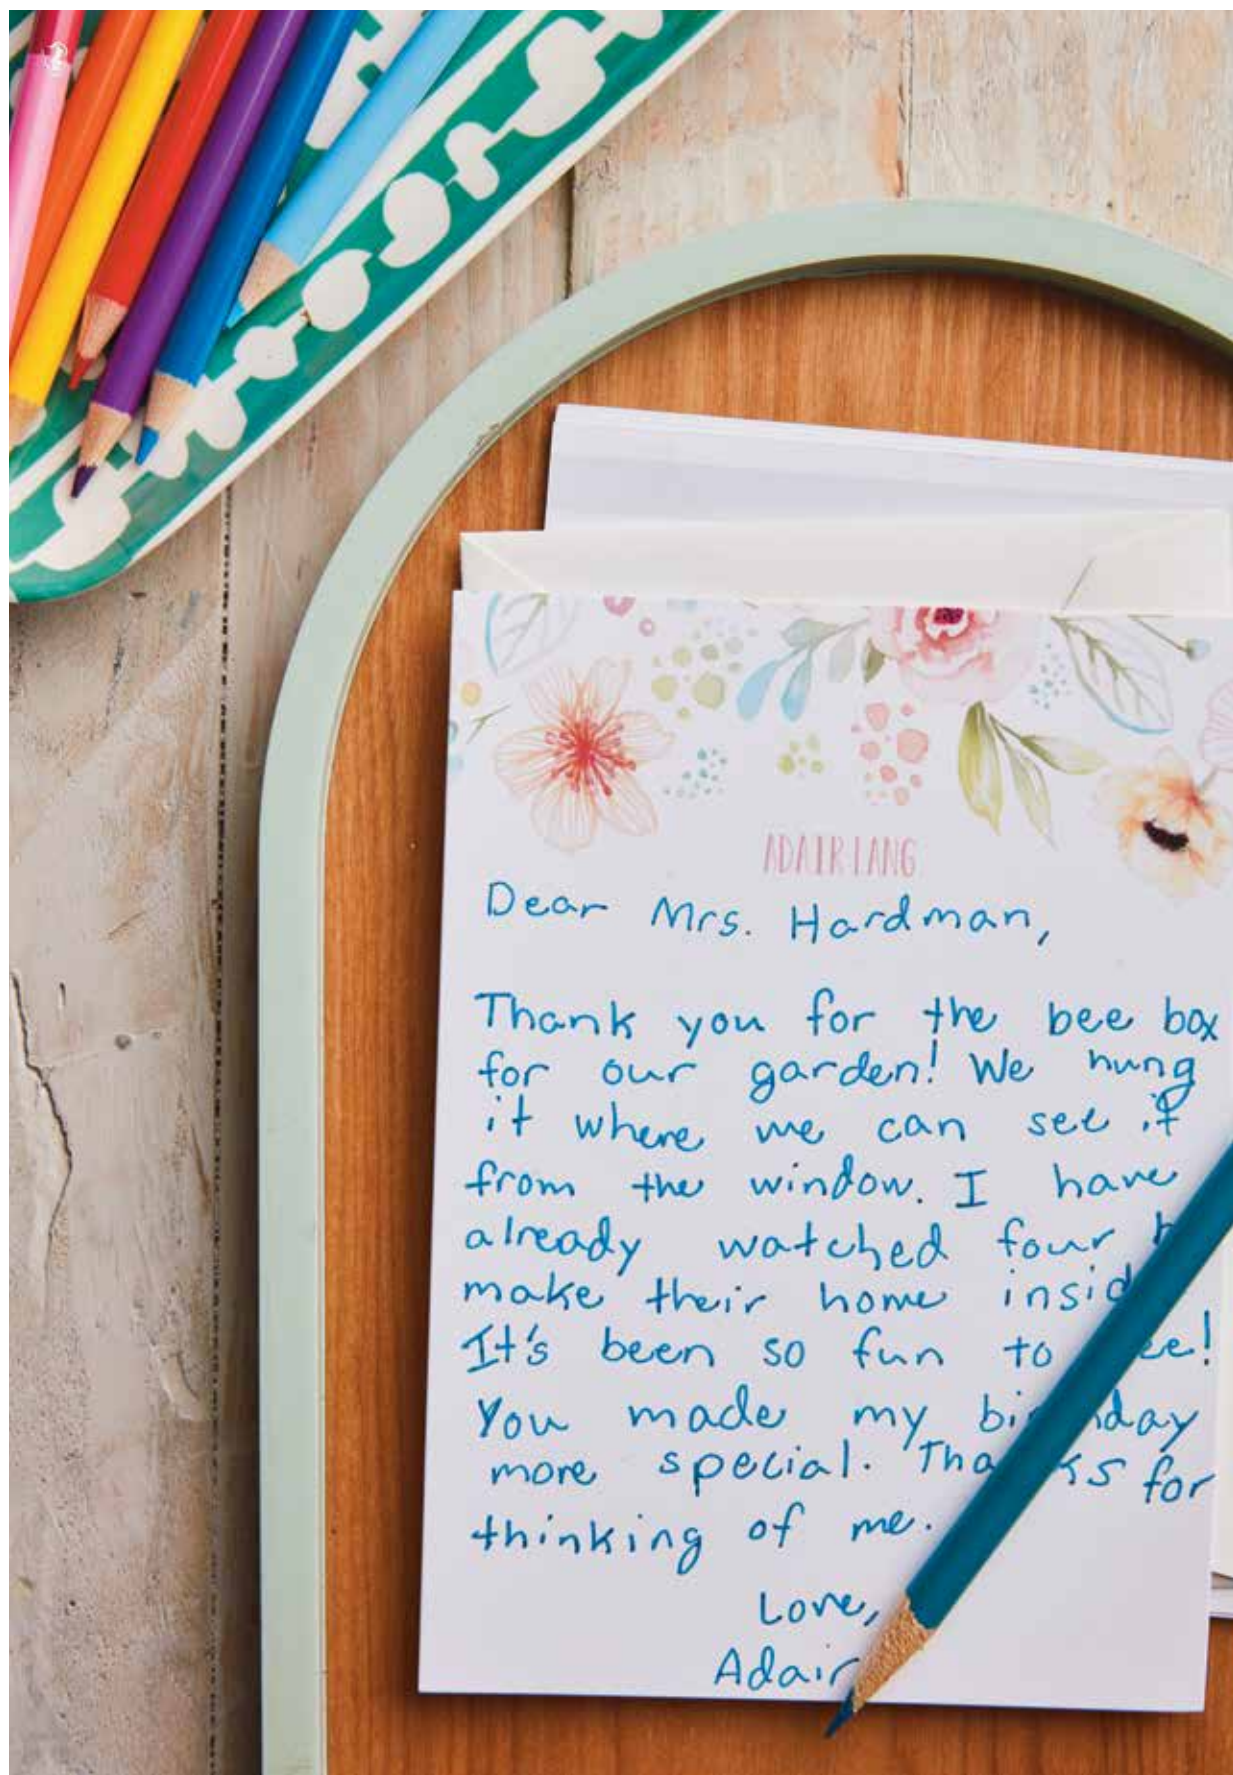 ADAIR LANG
Dear Mrs. Hardman,
Thank you for the bee box
for our garden! We hung
it where we can see it
from the window. I have
already watched four
make their home
It's been so fun to
You made my
more special. for
thinking of me.
Love,
Adair